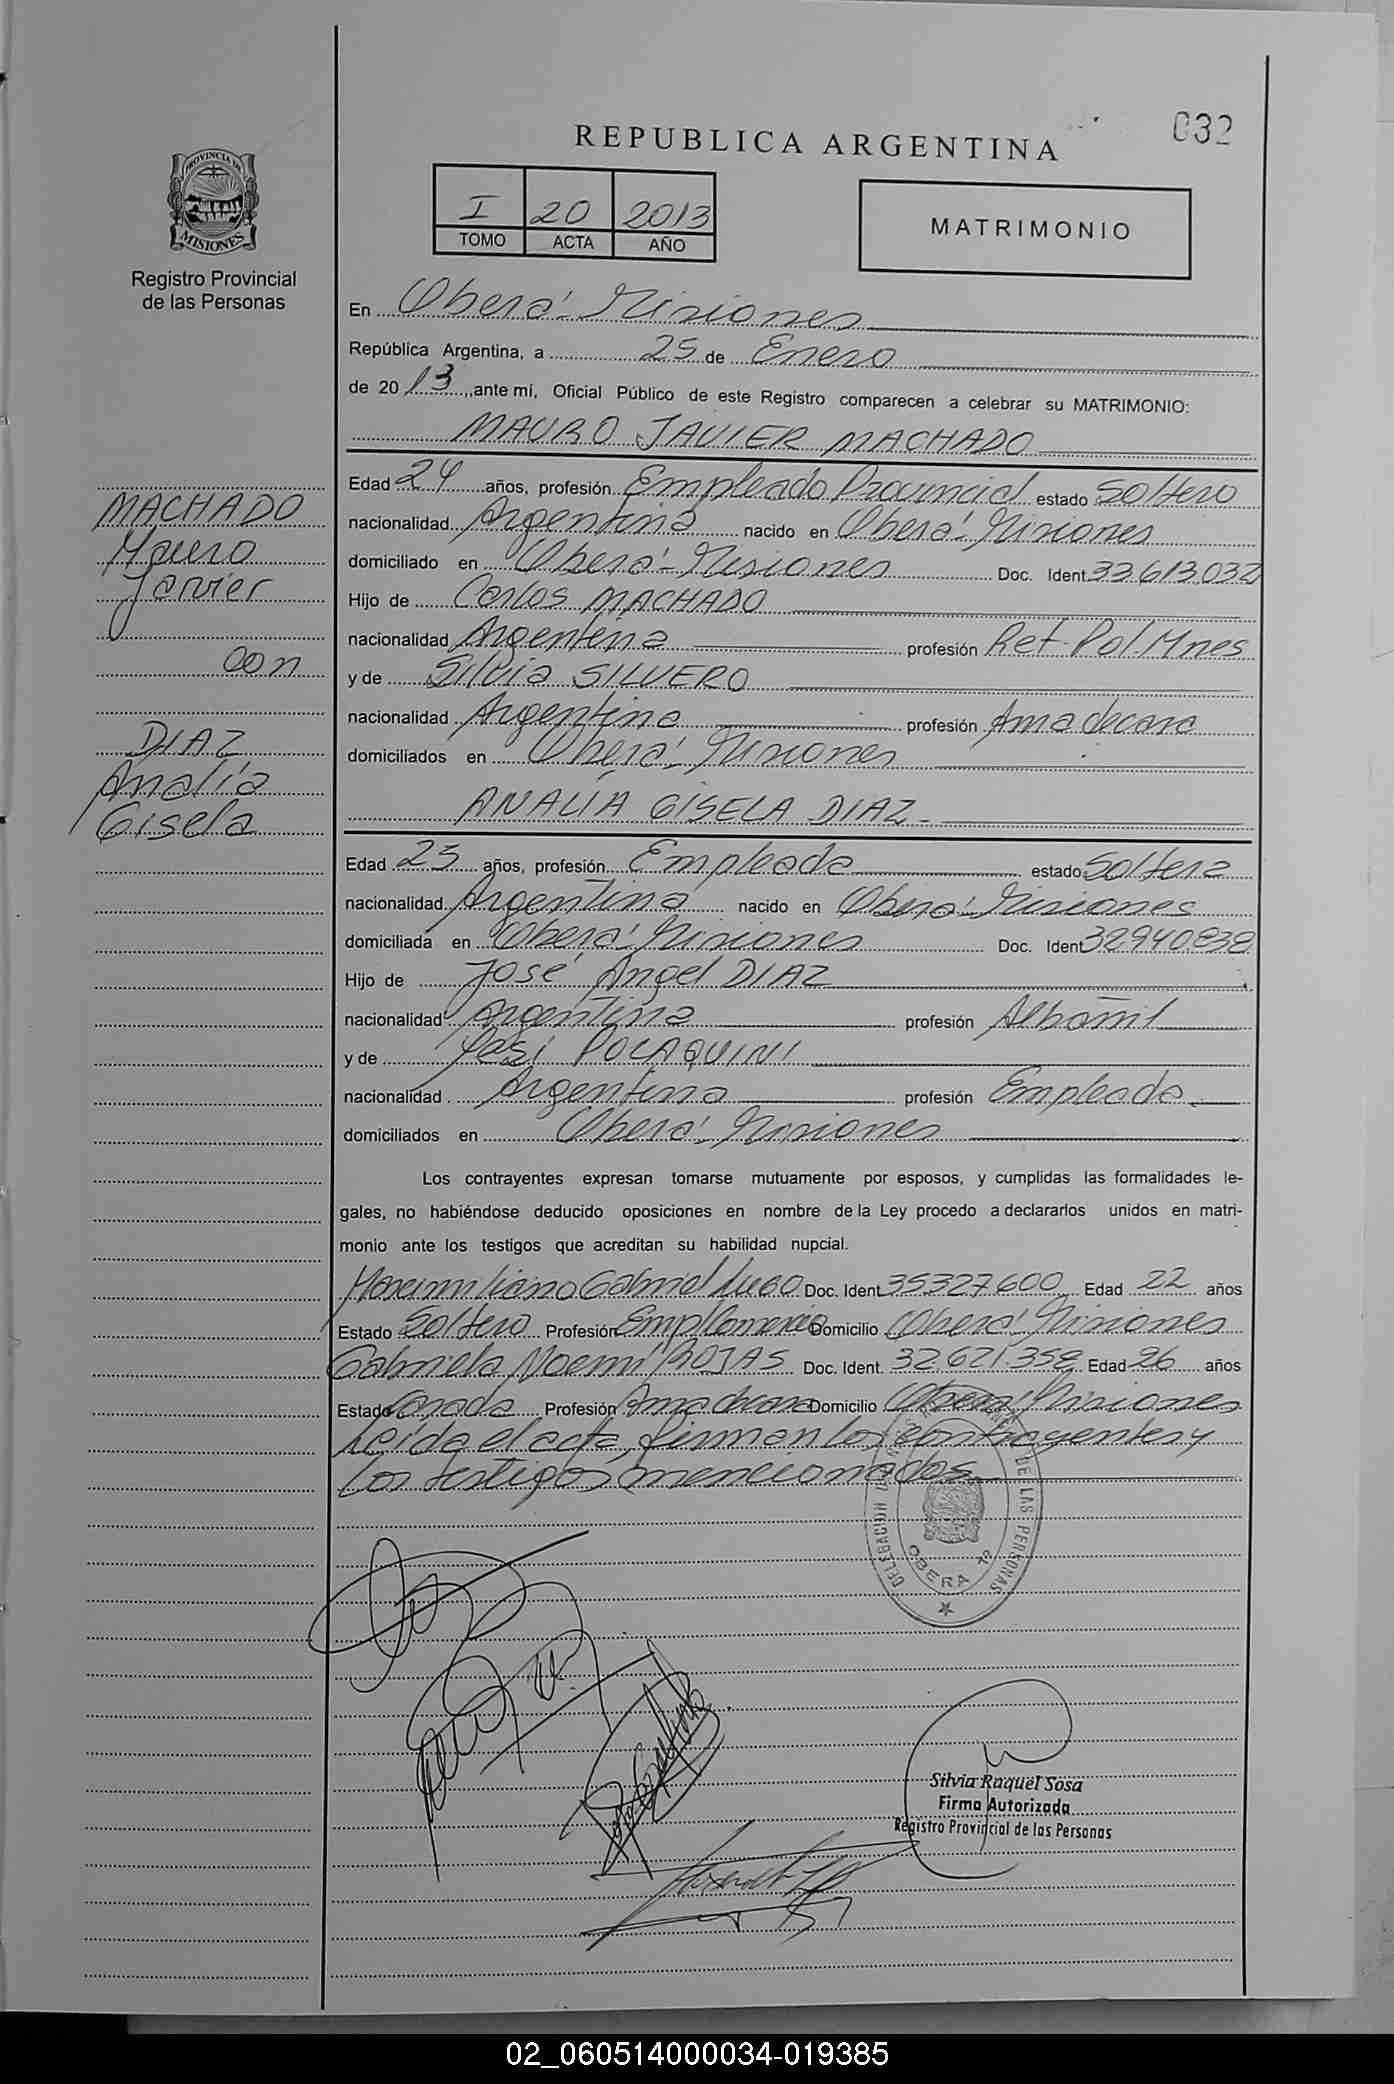 032
REPUBLICA ARGENTINA
PROVINCIA DE
MISIONES
Registro Provincial
de las Personas
I 20 2013
TOMO ACTA AÑO
MATRIMONIO
En Oberá - Misiones
República Argentina, a 25 de Enero
de 20 13, ante mí, Oficial Público de este Registro comparecen a celebrar su MATRIMONIO:
MAURO JAVIER MACHADO
MACHADO
Mauro
Javier
con
DIAZ
Analía
Gisela
Edad 24 años, profesión Empleado Provincial estado Soltero
nacionalidad Argentina nacido en Oberá - Misiones
domiciliado en Oberá - Misiones Doc. Ident. 33.613.032
Hijo de Carlos MACHADO
nacionalidad Argentina profesión Ret. Pol. Mnes
y de Silvia SILVERO
nacionalidad Argentina profesión Ama de casa
domiciliados en Oberá - Misiones
ANALÍA GISELA DIAZ
Edad 25 años, profesión Empleada estado Soltera
nacionalidad Argentina nacido en Oberá - Misiones
domiciliada en Oberá - Misiones Doc. Ident. 32.940.838
Hijo de José Angel DIAZ
nacionalidad Argentina profesión Albañil
y de POLAQUINI
nacionalidad Argentina profesión Empleada
domiciliados en Oberá - Misiones
Los contrayentes expresan tomarse mutuamente por esposos, y cumplidas las formalidades le-
gales, no habiéndose deducido oposiciones en nombre de la Ley procedo a declararlos unidos en matri-
monio ante los testigos que acreditan su habilidad nupcial.
Maximiliano Gabriel Lugo Doc. Ident. 35327600 Edad 22 años
Estado Soltero Profesión Domicilio Oberá - Misiones
Gabriela Noemí ROJAS Doc. Ident. 32.621.358 Edad 26 años
Estado Casada Profesión Ama de casa Domicilio Oberá - Misiones
Leída el acta, firman los contrayentes y
los testigos mencionados
DELEGACION DE LAS PERSONAS
OBERA
Silvia Raquel Sosa
Firma Autorizada
Registro Provincial de las Personas
02_060514000034-019385